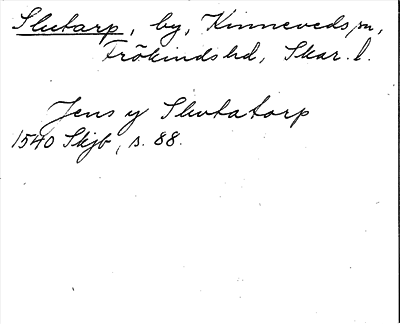 Slutarp, by, Kinneveds sn,
Frökinds hd, Skar. l.
Jens y Slwtatorp
1540 Skjb, s. 88.